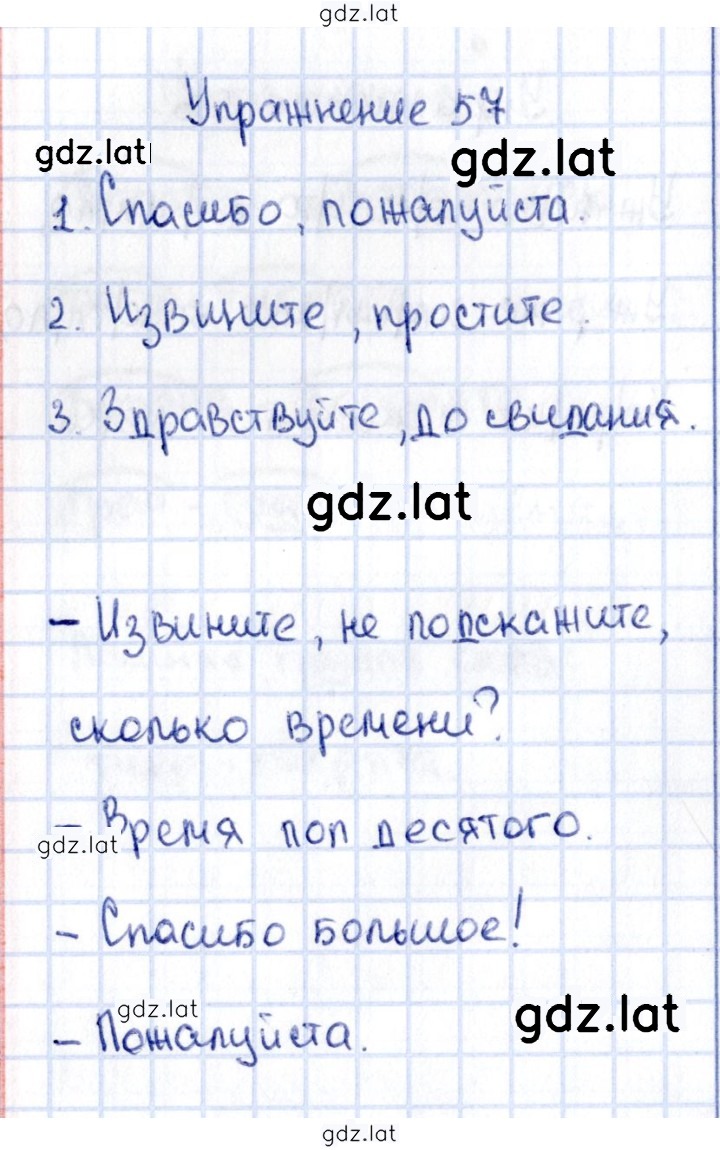 gdz.lat
Упражнение 57
gdz.lat
gdz.lat
1. Спасибо, пожалуйста.
2. Извините, простите.
3. Здравствуйте, до свидания.
gdz.lat
– Извините, не подскажите,
сколько времени?
– Время пол десятого.
gdz.lat
– Спасибо большое!
gdz.lat
gdz.lat
– Пожалуйста.
gdz.lat